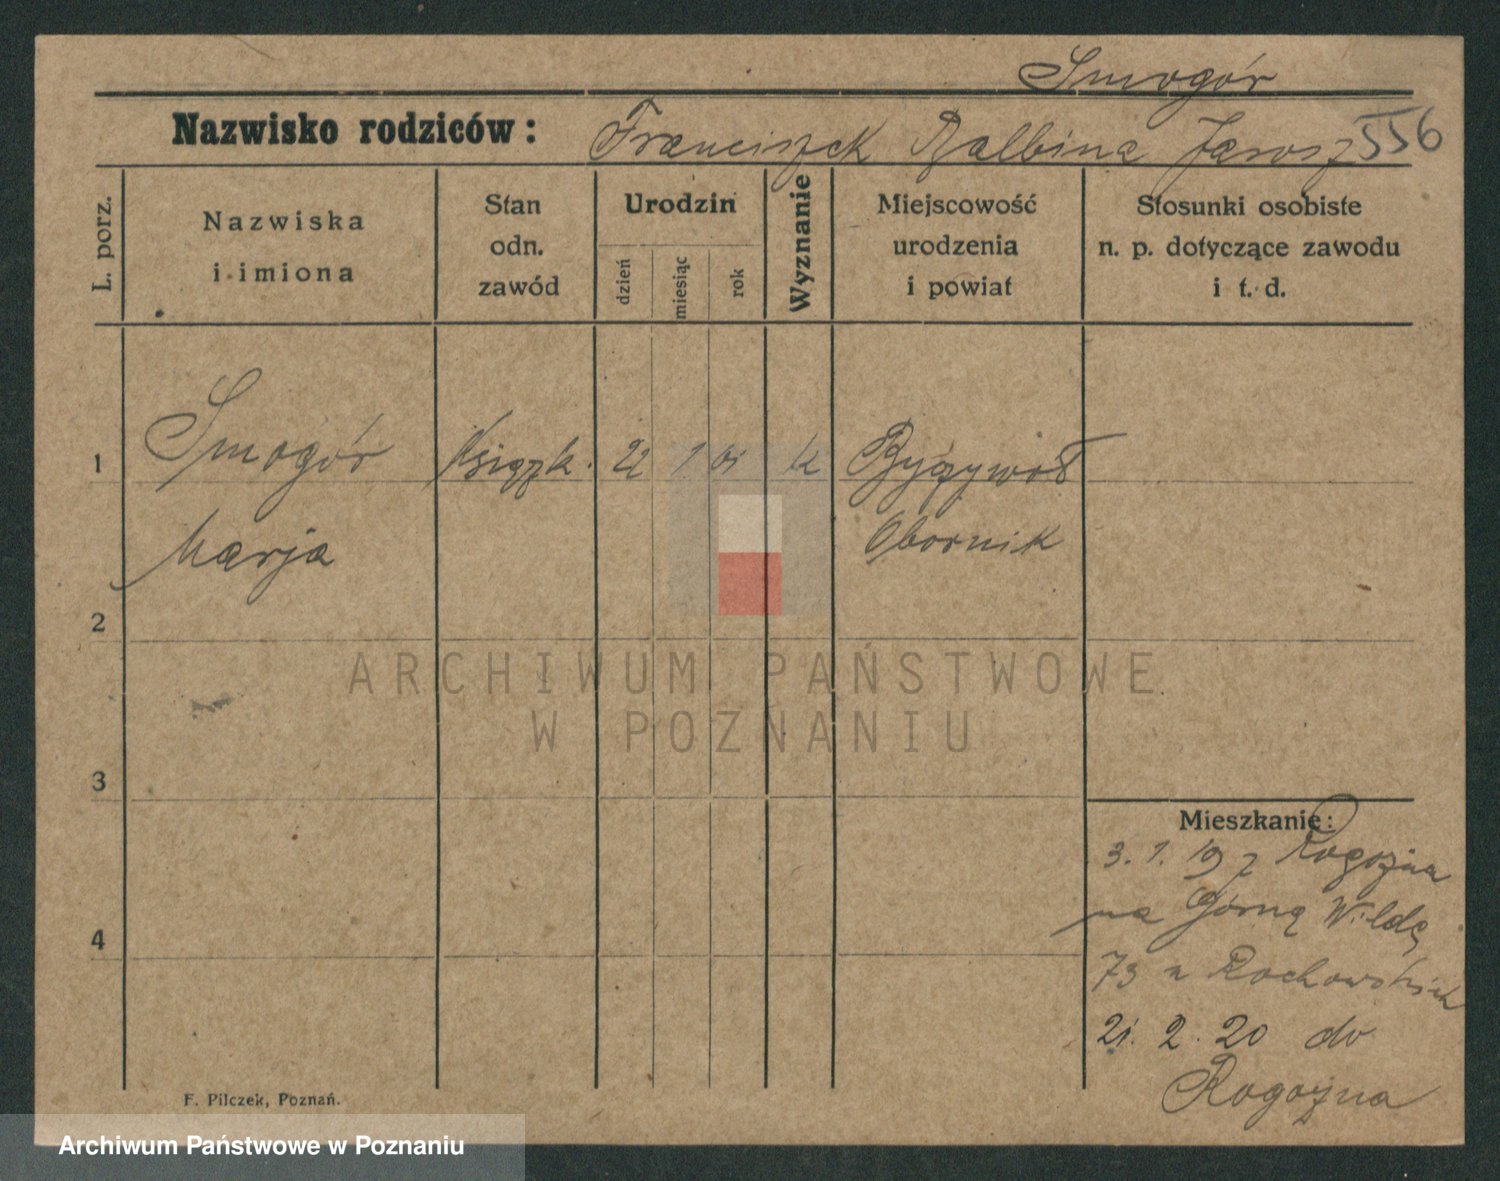 Smogór
Nazwisko rodziców: Franciszek Balbina Jarosz 556
L. porz.
Nazwiska
i imiona
Stan
odn.
zawód
Urodzin
dzień
miesiąc
rok
Wyznanie
Miejscowość
urodzenia
i powiat
Stosunki osobiste
n. p. dotyczące zawodu
i t. d.
1 Smogór Książk. 22 1 01 k Ryczywoł
Marja Obornik
2
ARCHIWUM PAŃSTWOWE
W POZNANIU
3
Mieszkanie:
3. 1. 19 z Rogoźna
na Górną Wildę
4
73 u Rochowskich
21. 2. 20 do
Rogoźna
F. Pilczek, Poznań.
Archiwum Państwowe w Poznaniu